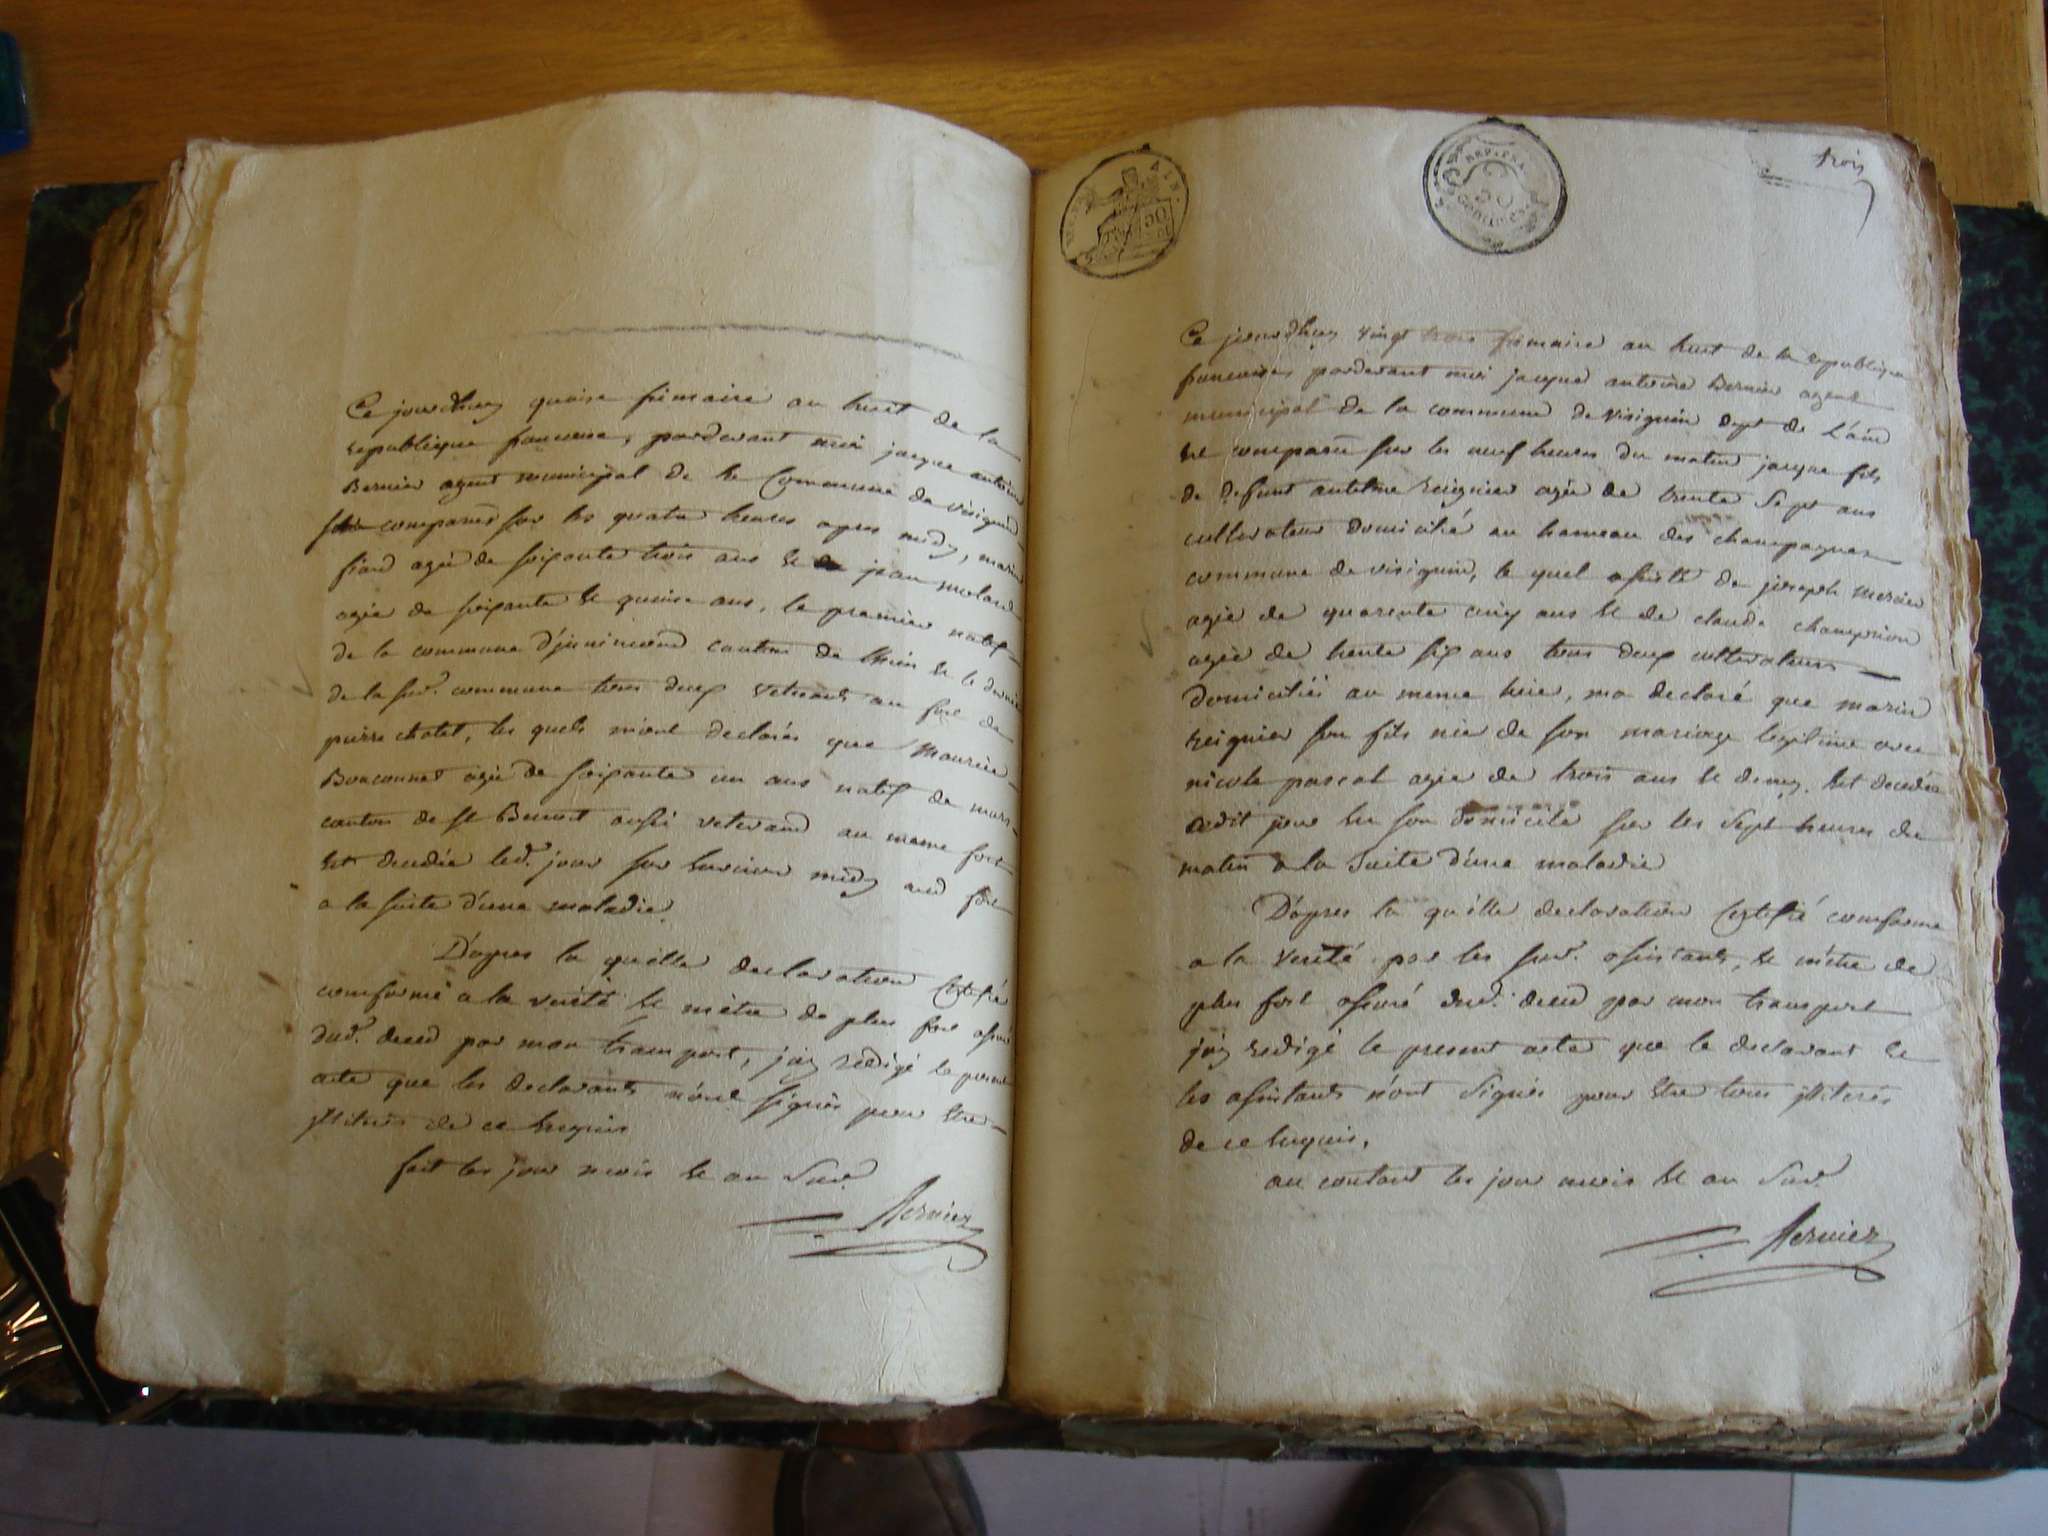 Ce jourdhuy quinze frimaire an huit de la
republique francaise, pardevant moi jacque antoine
Bernier agent municipal de la Commune de visignin
comparus sur les quatre heures apres midy, marin
fiard agé de soixante trois ans et jean molard
agée de soixante et quinze ans, le premier natif
de la commune canton de et le dernier
de la sud. commune tous deux veterants au fort de
pierre chatel, les quels m'ont declarés que Maurice
Bouconnet agée de soixante un ans natif de
canton de st Benoit aussi veterand au meme fort
est decedée led. jour sur midy aud fort
a la suite d'une maladie.
D'apres la qu'elle declaration Certifié
conforme a la verité et m'etre de plus fort assuré
dud. deced par mon transport, j'ay redigé le present
acte que les declarants n'ont signés pour etre
illiterés de ce enquis
fait les jour mois et an sud.
Bernier
trois
Ce jourdhuy vingt trois frimaire an huit de la republique
francaises pardevant moi jacque antoine Bernier agent
municipal de la commune de visignin dept de L'ain
est comparu sur les neuf heures du matin jacque fils
de defunt antelme reignier agée de trente sept ans
cultivateur domicilié au hameau des champagnes
commune de visignin, le quel assisté de joseph mercier
agée de quarente cinq ans et de claude champion
agée de trente six ans tous deux cultivateurs
domiciliés au meme lieu, ma declaré que marin
reignier son fils née de son mariage legitime avec
nicole pascal agée de trois ans et demy, est decedée
cedit jour en son domicile sur les sept heures du
matin a la suite d'une maladie
D'apres la qu'elle declaration Certifié conforme
a la verité par les sud. assistants, et m'etre de
plus fort assuré dud. deced par mon transport
j'ay redigé le present acte que le declarant et
les assistants n'ont signés pour etre tous illiterés
de ce enquis,
au contant les jour mois et an sud.
Bernier